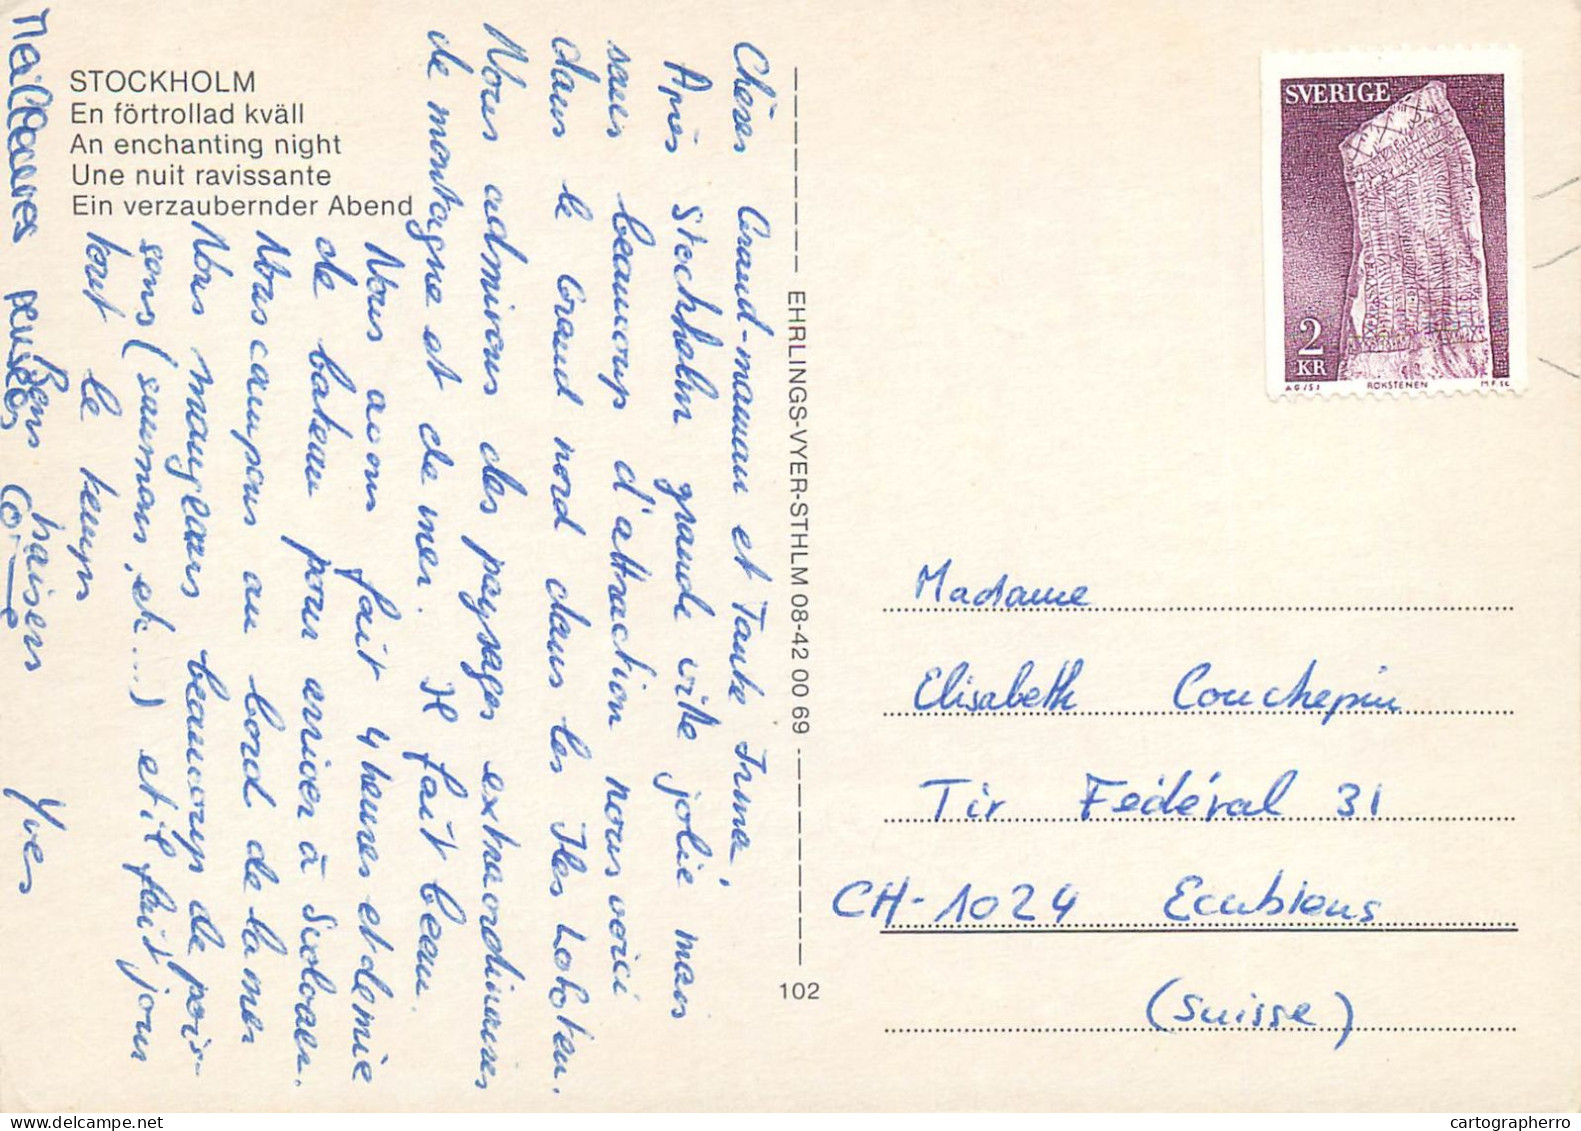 STOCKHOLM
En förtrollad kväll
An enchanting night
Une nuit ravissante
Ein verzaubernder Abend
Chères Grand-maman et Tante Irma,
Après Stockholm grande ville jolie mais
sans beaucoup d'attraction nous voici
dans le Grand nord dans les Iles Lofoten.
Nous admirons des paysages extraordinaires
de montagne et de mer. Il fait beau.
Nous avons fait 4 heures et demie
de bateau pour arriver à Svolvaer.
Nous campons au bord de la mer
Nous mangeons beaucoup de pois-
sons (saumons, etc...) et il fait jour
tout le temps
Bons baisers Yves
Meilleures pensées
EHRLINGS-VYER-STHLM 08-42 00 69
102
SVERIGE
2
KR
RÖKSTENEN
Madame
Elisabeth Couchepin
Tir Fédéral 31
CH-1024 Ecublens
(Suisse)
cartographerro